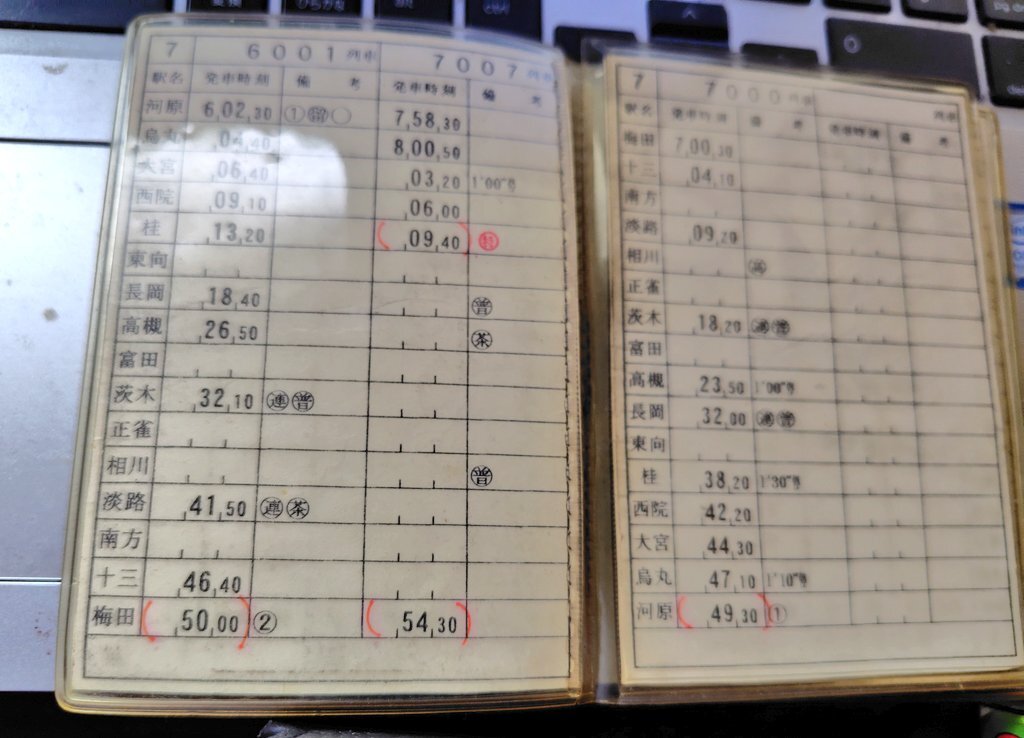 7 6001列車 7007列車
駅名 発車時刻 備考 発車時刻 備考
河原 6,02,30 ①㊝○ 7,58,30
烏丸 ,04,40 8,00,50
大宮 ,06,40 ,03,20 1'00"号
西院 ,09,10 ,06,00
桂 ,13,20 (,09,40)
東向
長岡 ,18,40 普
高槻 ,26,50 茶
富田
茨木 ,32,10 連 普
正雀
相川 普
淡路 ,41,50 連 茶
南方
十三 ,46,40
梅田 (,50,00) ② (,54,30)
7 7000列車 列車
駅名 発車時刻 備考 発車時刻 備考
梅田 7,00,30
十三 ,04,10
南方
淡路 ,09,20
相川 高
正雀
茨木 ,18,20 連 普
富田
高槻 ,23,50 1'00"号
長岡 ,32,00 連 普
東向
桂 ,38,20 1'30"号
西院 ,42,20
大宮 ,44,30
烏丸 ,47,10 1'10"号
河原 (,49,30) ①